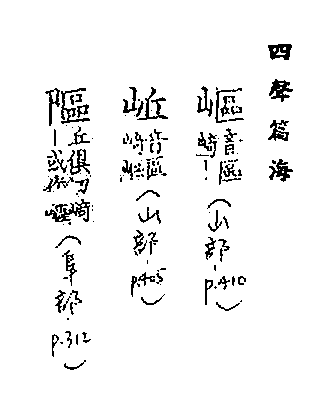 四聲篇海
嶇 音區崎丨(山部 p.410)
岴 音區崎岴(山部 p.405)
䧢 丘俱切崎丨或作嶇(阜部 p.312)